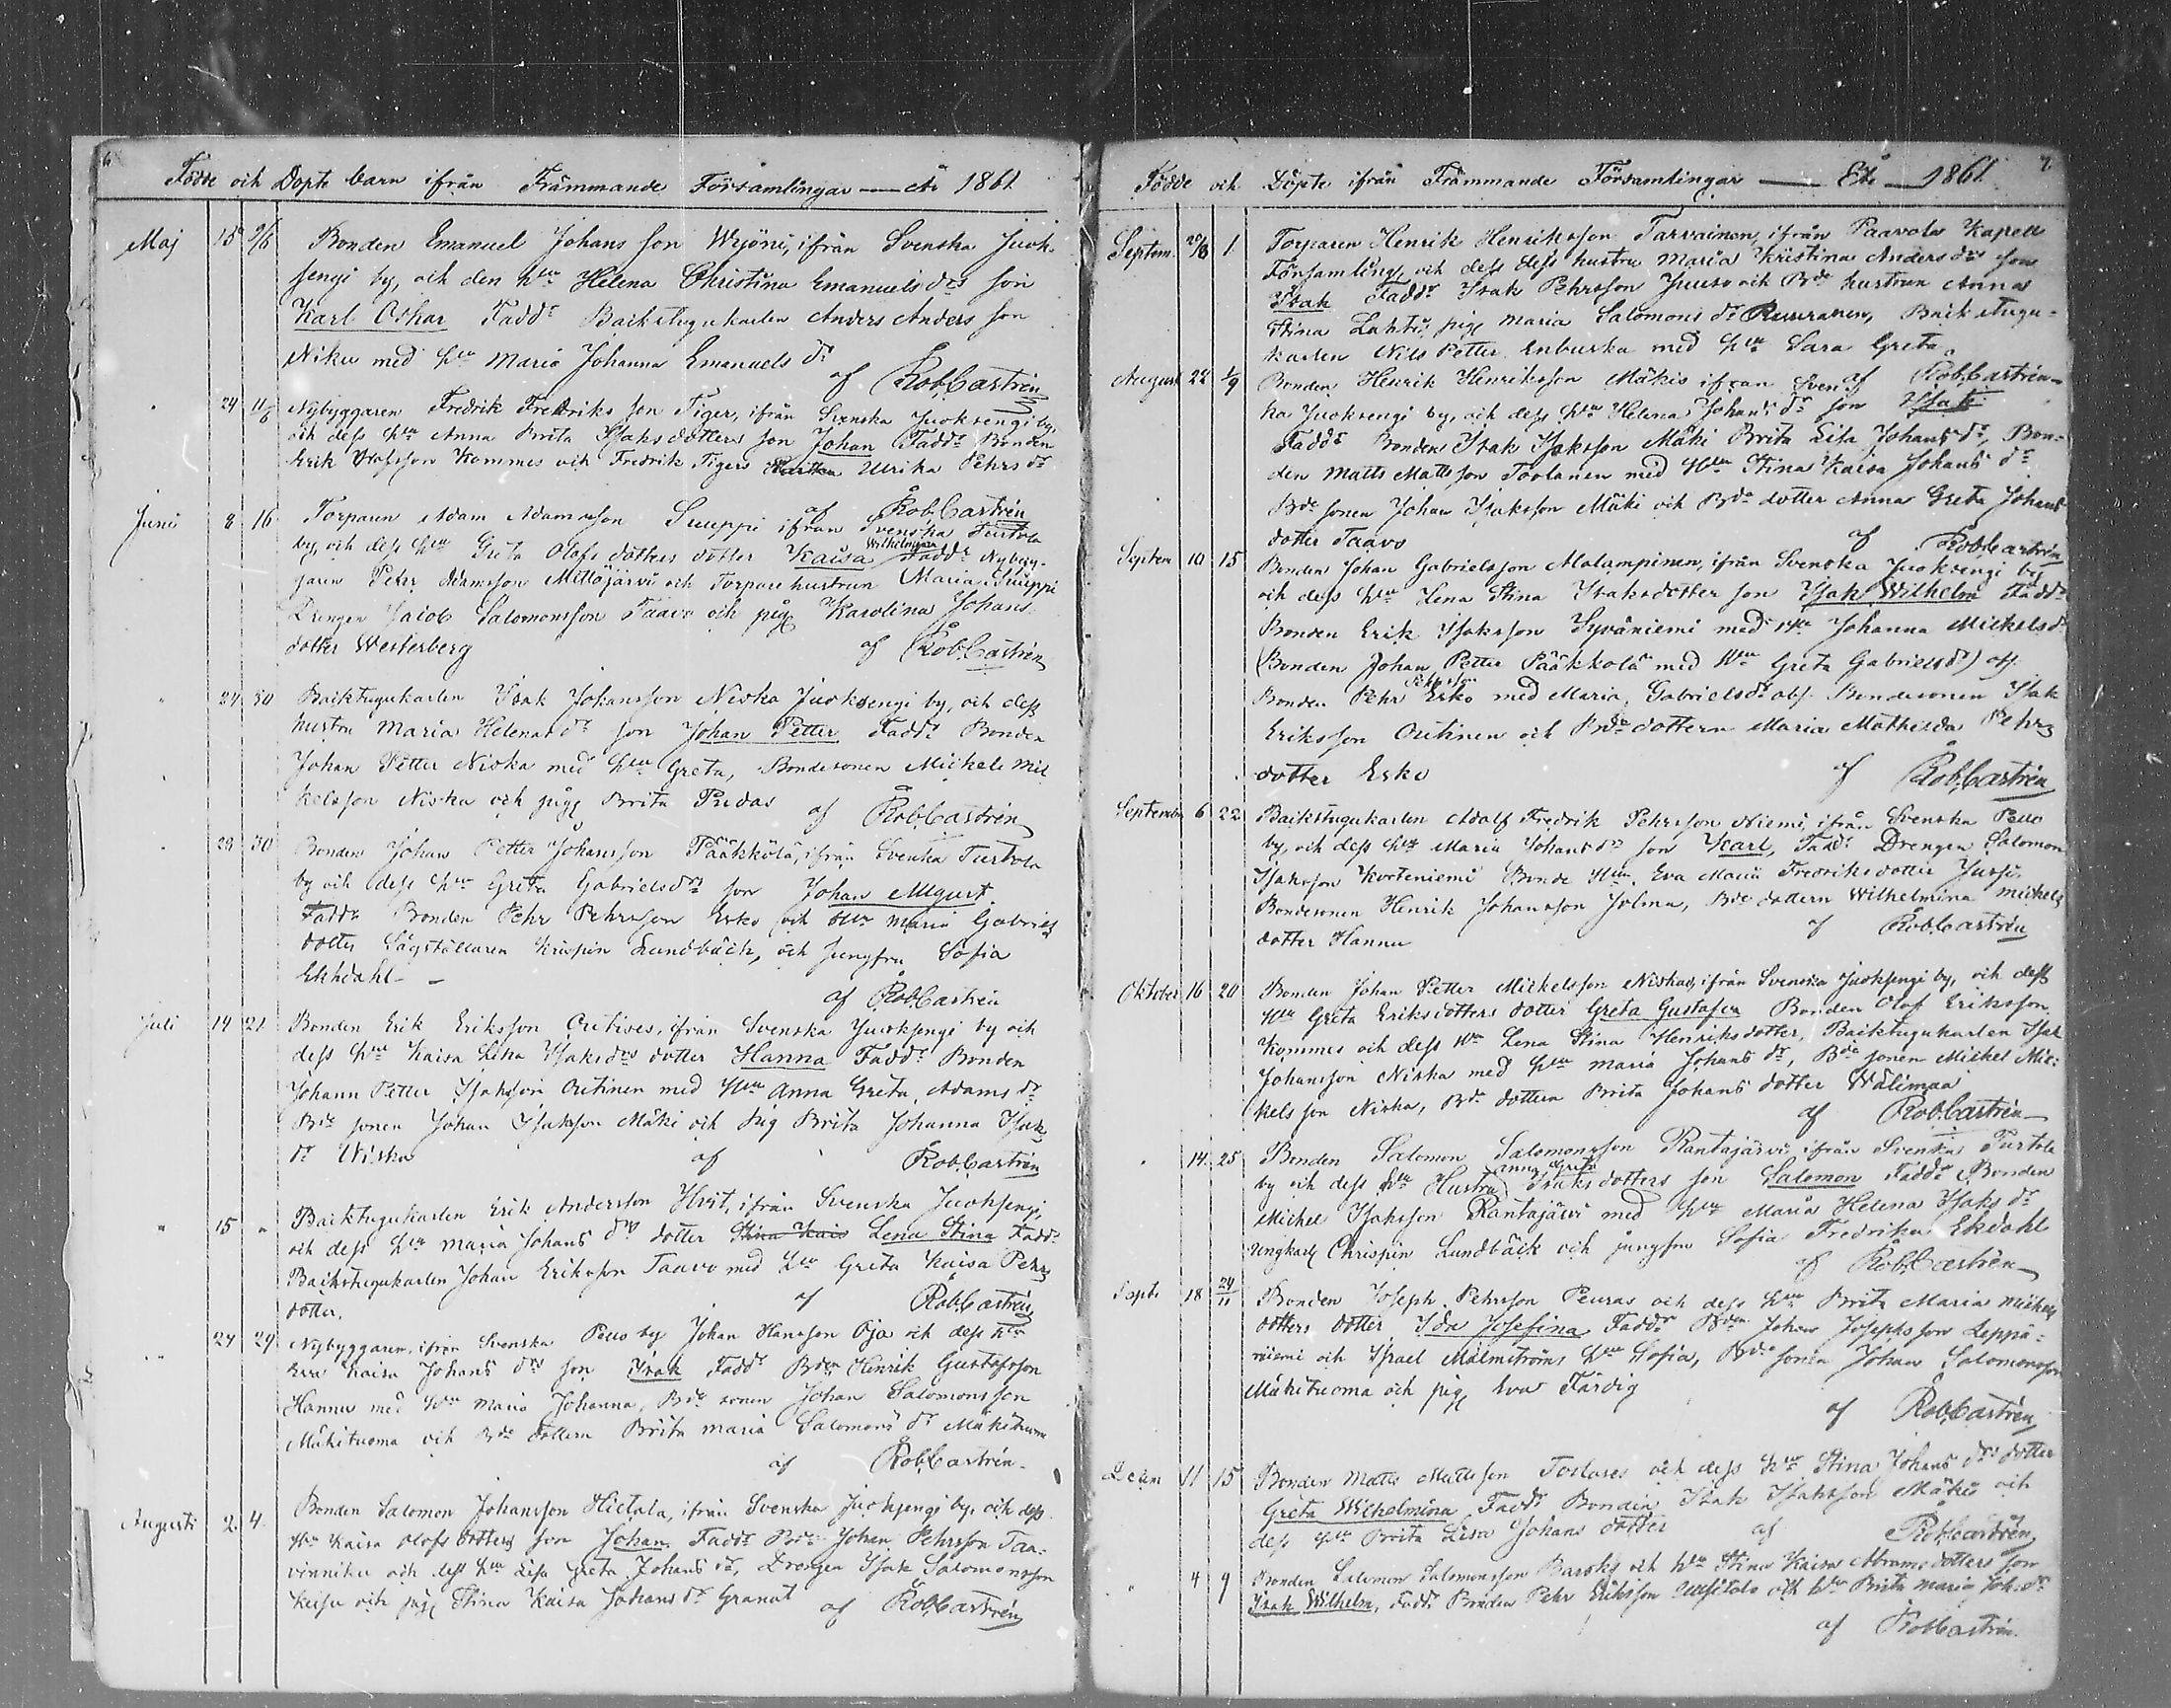 6
Födde och Döpte barn ifrån Främmande Församlingar — År 1861
Maj 15 9/6 Bonden Emanuel Johans son Wyöni, ifrån Svenska Juok-
sengi by, och den hu Helena Christina Emanuels drs son
Karl Oskar Faddr Backstugukarlen Anders Anders son
Niku med hu Maria Johanna Emanuels dr
af Rob. Castrén
24 Nybyggaren Fredrik Fredriks son Tiger, ifrån Svenska Juoksengi by,
och dess hu Anna Brita Isaks dotters son Johan Faddr Bonden
Erik Olofsson Kommes och Fredrik Tigers Ulrika Pehrs dr
af Rob. Castrén
Juni 8 16 Torparen Adam Adamsson Suuppi ifrån Svenska Turtola
by, och dess hu Greta Olofs dotters dotter Kaisa Wilhelmina Faddr Nybyg-
garen Pehr Adamsson Mittöjärvi och Torpare hustrun Maria Suuppi
Drengen Jacob Salomonsson Taavo och pig Karolina Johans
dotter Westerberg af Rob. Castrén
24 30 Backstugukarlen Isak Johansson Niska Juoksengi by, och dess
hustru Maria Helena dr son Johan Petter Faddr Bonden
Johan Petter Niska med hu Greta, Bondesonen Mickel Mic
kelsson Niska och pig Brita Pudas af Rob. Castrén
29 30 Bonden Johan Petter Johansson Pääkkölä, ifrån Svenska Turtola
by och dess hu Greta Gabrielsdrs son Johan August.
Faddr Bonden Pehr Pehrsson Esko och Hu Maria Gabriels
dotter Sågställaren Krispin Lundbäck, och Jungfru Sofia
Ekhdahl —
af Rob. Castrén
Juli 14 21 Bonden Erik Eriksson Outives, ifrån Svenska Juoksengi by och
dess hu Kaisa Lisa Isaks drs dotter Hanna Faddr Bonden
Johann Petter Isaksson Outinen med Hu Anna Greta Adams dr
Bde sonen Johan Isaksson Mäki och Pig Brita Johanna Isaks
dr Niska af Rob. Castrén
" 15 " Backstugukarlen Erik Andersson Hvit, ifrån Svenska Juoksengi,
och dess hu Maria Johans drs dotter Stina Kais Lena Stina Faddr
Backstugukarlen Johan Eriksson Taavo med hu Greta Kaisa Pehrs
dotter. af Rob. Castrén
24 29 Nybyggaren, ifrån Svenska Pello by Johan Hansson Oja och dess hu
Eva Kaisa Johans drs son Isak Faddr Bden Henrik Gustafsson
Hannu med hu Maria Johanna, Bde sonen Johan Salomonsson
Mäkituoma och Bde dottern Brita Maria Salomons dr Mäkituoma
af Rob. Castrén.
Augusti 2 4 Bonden Salomon Johansson Hietala, ifrån Svenska Juoksengi by, och dess
Hu Kaisa Olofs dotters son Johan, Faddr Bde Johan Pehrsson Taa-
vinniku och dess hu Lisa Greta Johans dr, Drengen Isak Salomonsson
Keisu och pig Stina Kaisa Johans dr Granat af Rob. Castrén
7
Födde och Döpte ifrån Främmande Församlingar — År — 1861
Septem. 1 Torparen Henrik Henriksson Tarvainen, ifrån Paavola Kapell
Församling, och dess dess hustru Maria Kristina Anders drs son
Isak Faddr Isak Pehrsson Juuso och Bde hustrun Anna
Stina Lahti, pig Maria Salomons dr Ruuranen, Backstugu-
karlen Nils Petter Enbuska med hu Sara Greta.
af Rob. Castrén
August 22 1/9 Bonden Henrik Henriksson Mäkis ifrån Svens
ka Juoksengi by, och dess hu Helena Johans dr son Isak
Faddr Bonden Isak Isaksson Mäki Brita Lisa Johans dr, Bon-
den Matts Mattsson Toolanen med Hu Stina Kaisa Johans dr
Bde sonen Johan Isaksson Mäki och Bde dotter Anna Greta Johans
dotter Taavo af Rob. Castrén
Septem 10 15 Bonden Johan Gabrielsson Malampinen, ifrån Svenska Juoksengi by
och dess hu Lena Stina Isaksdotter son Isak Wilhelm Faddr
Bonden Erik Isaksson Syväniemi med Hu Johanna Mickels dr
(Bonden Johan Petter Pääkkölä med Hu Greta Gabriels dr) obs.
Bonden Pehr Pehrsson Esko med Maria Gabriels dr obs. Bondesonen Isak
Eriksson Outinen och Bde dottern Maria Mathilda Pehrs
dotter Esko af Rob. Castrén
September 6 22 Backstugukarlen Adolf Fredrik Pehrsson Niemi, ifrån Svenska Pello
by, och dess hu Maria Johans drs son Karl, Faddr Drengen Salomon
Isaksson Korteniemi Bonde Hu Eva Maria Fredriksdotter Jussi
Bondesonen Henrik Johansson Jolma, Bde dottern Wilhelmina Mickels
dotter Hannu af Rob. Castrén
Oktober 16 20 Bonden Johan Petter Mickelsson Niska, ifrån Svenska Juoksengi by, och dess
Hu Greta Eriksdotters dotter Greta Gustafva Bonden Olof Eriksson
Kommes och dess Hu Lena Stina Henriksdotter, Backstugukarlen Isak
Johansson Niska med hu Maria Johans dr, Bde sonen Mickel Mic-
kelsson Niska, Bde dottern Brita Johans dotter Wälimaa
af Rob. Castrén
14. 25 Bonden Salomon Salomonsson Rantajärvi ifrån Svenska Turtola
by och dess hu Hustru Anna Greta Isaks dotters son Salomon Faddr Bonden
Mickel Isaksson Rantajärvi med hu Maria Helena Isaks dr
ungkarl Chrispin Lundbäck och jungfru Sofia Fredrika Ekdahl
af Rob. Castrén
Septb 18 24/11 Bonden Joseph Pehrsson Peuras och dess hu Brita Maria Mickels
dotters dotter Ida Josefina Faddr Bden Johan Josephsson Leppä-
niemi och Israel Malmströms hu Sofia, Bde sonen Johan Salomonsson
Mäkituoma och pig Eva Färdig
af Rob. Castrén
Decem 11 15 Bonden Matts Mattsson och dess hu Stina Johans drs dotter
Greta Wilhelmina Faddr Bonden Isak Isaksson Mäki och
dess hu Brita Lisa Johans dotter af Rob. Castrén
" 4 9 Bonden Salomon Salomonsson och hu Stina Kaisa Abrams dotters son
Isak Wilhelm, Faddr Bonden Pehr Eriksson och hu Brita Maria Joh. dr
af Rob. Castrén.